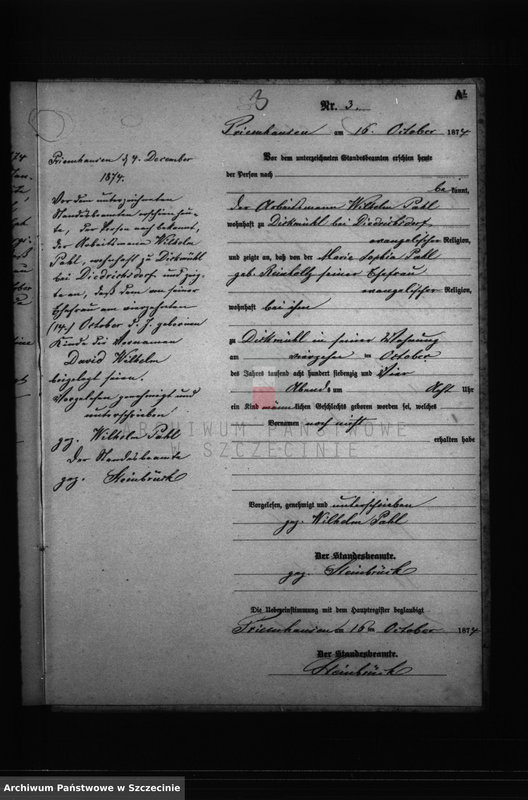 3
A1
Nr. 3.
Priemhausen am 16. October 1874
Vor dem unterzeichneten Standesbeamten erschien heute
der Person nach
be kannt,
der Arbeitsmann Wilhelm Pahl
wohnhaft zu Dickmühl bei Diedrichsdorf
evangelischer Religion,
und zeigte an, daß von der Marie Sophie Pahl
geb. Reinholtz seiner Ehefrau
evangelischer Religion,
wohnhaft bei ihm
zu Dickmühl in seiner Wohnung
am vierzehn ten October
des Jahres tausend acht hundert siebenzig und vier
Abends um Acht Uhr
ein Kind männlichen Geschlechts geboren worden sei, welches
Vornamen noch nicht
erhalten habe
Vorgelesen, genehmigt und unterschrieben
gez. Wilhelm Pahl
Der Standesbeamte.
gez. Steinbrück
Die Uebereinstimmung mit dem Hauptregister beglaubigt
Priemhausen am 16 ten October 1874
Der Standesbeamte.
Steinbrück
Priemhausen d 4. December
1874.
Vor dem unterzeichneten
Standesbeamten erschien heu-
te, der Person nach bekannt,
der Arbeitsmann Wilhelm
Pahl, wohnhaft zu Dickmühl
bei Diedrichsdorf und zeig-
te an, daß dem von seiner
Ehefrau am vierzehnten
(14.) October d. J. geborenen
Kinde die Vornamen
David Wilhelm
beigelegt seien.
Vorgelesen genehmigt und
unterschrieben
gez. Wilhelm Pahl
Der Standesbeamte
gez. Steinbrück
ARCHIWUM PAŃSTWOWE
SZCZECINIE
Archiwum Państwowe w Szczecinie